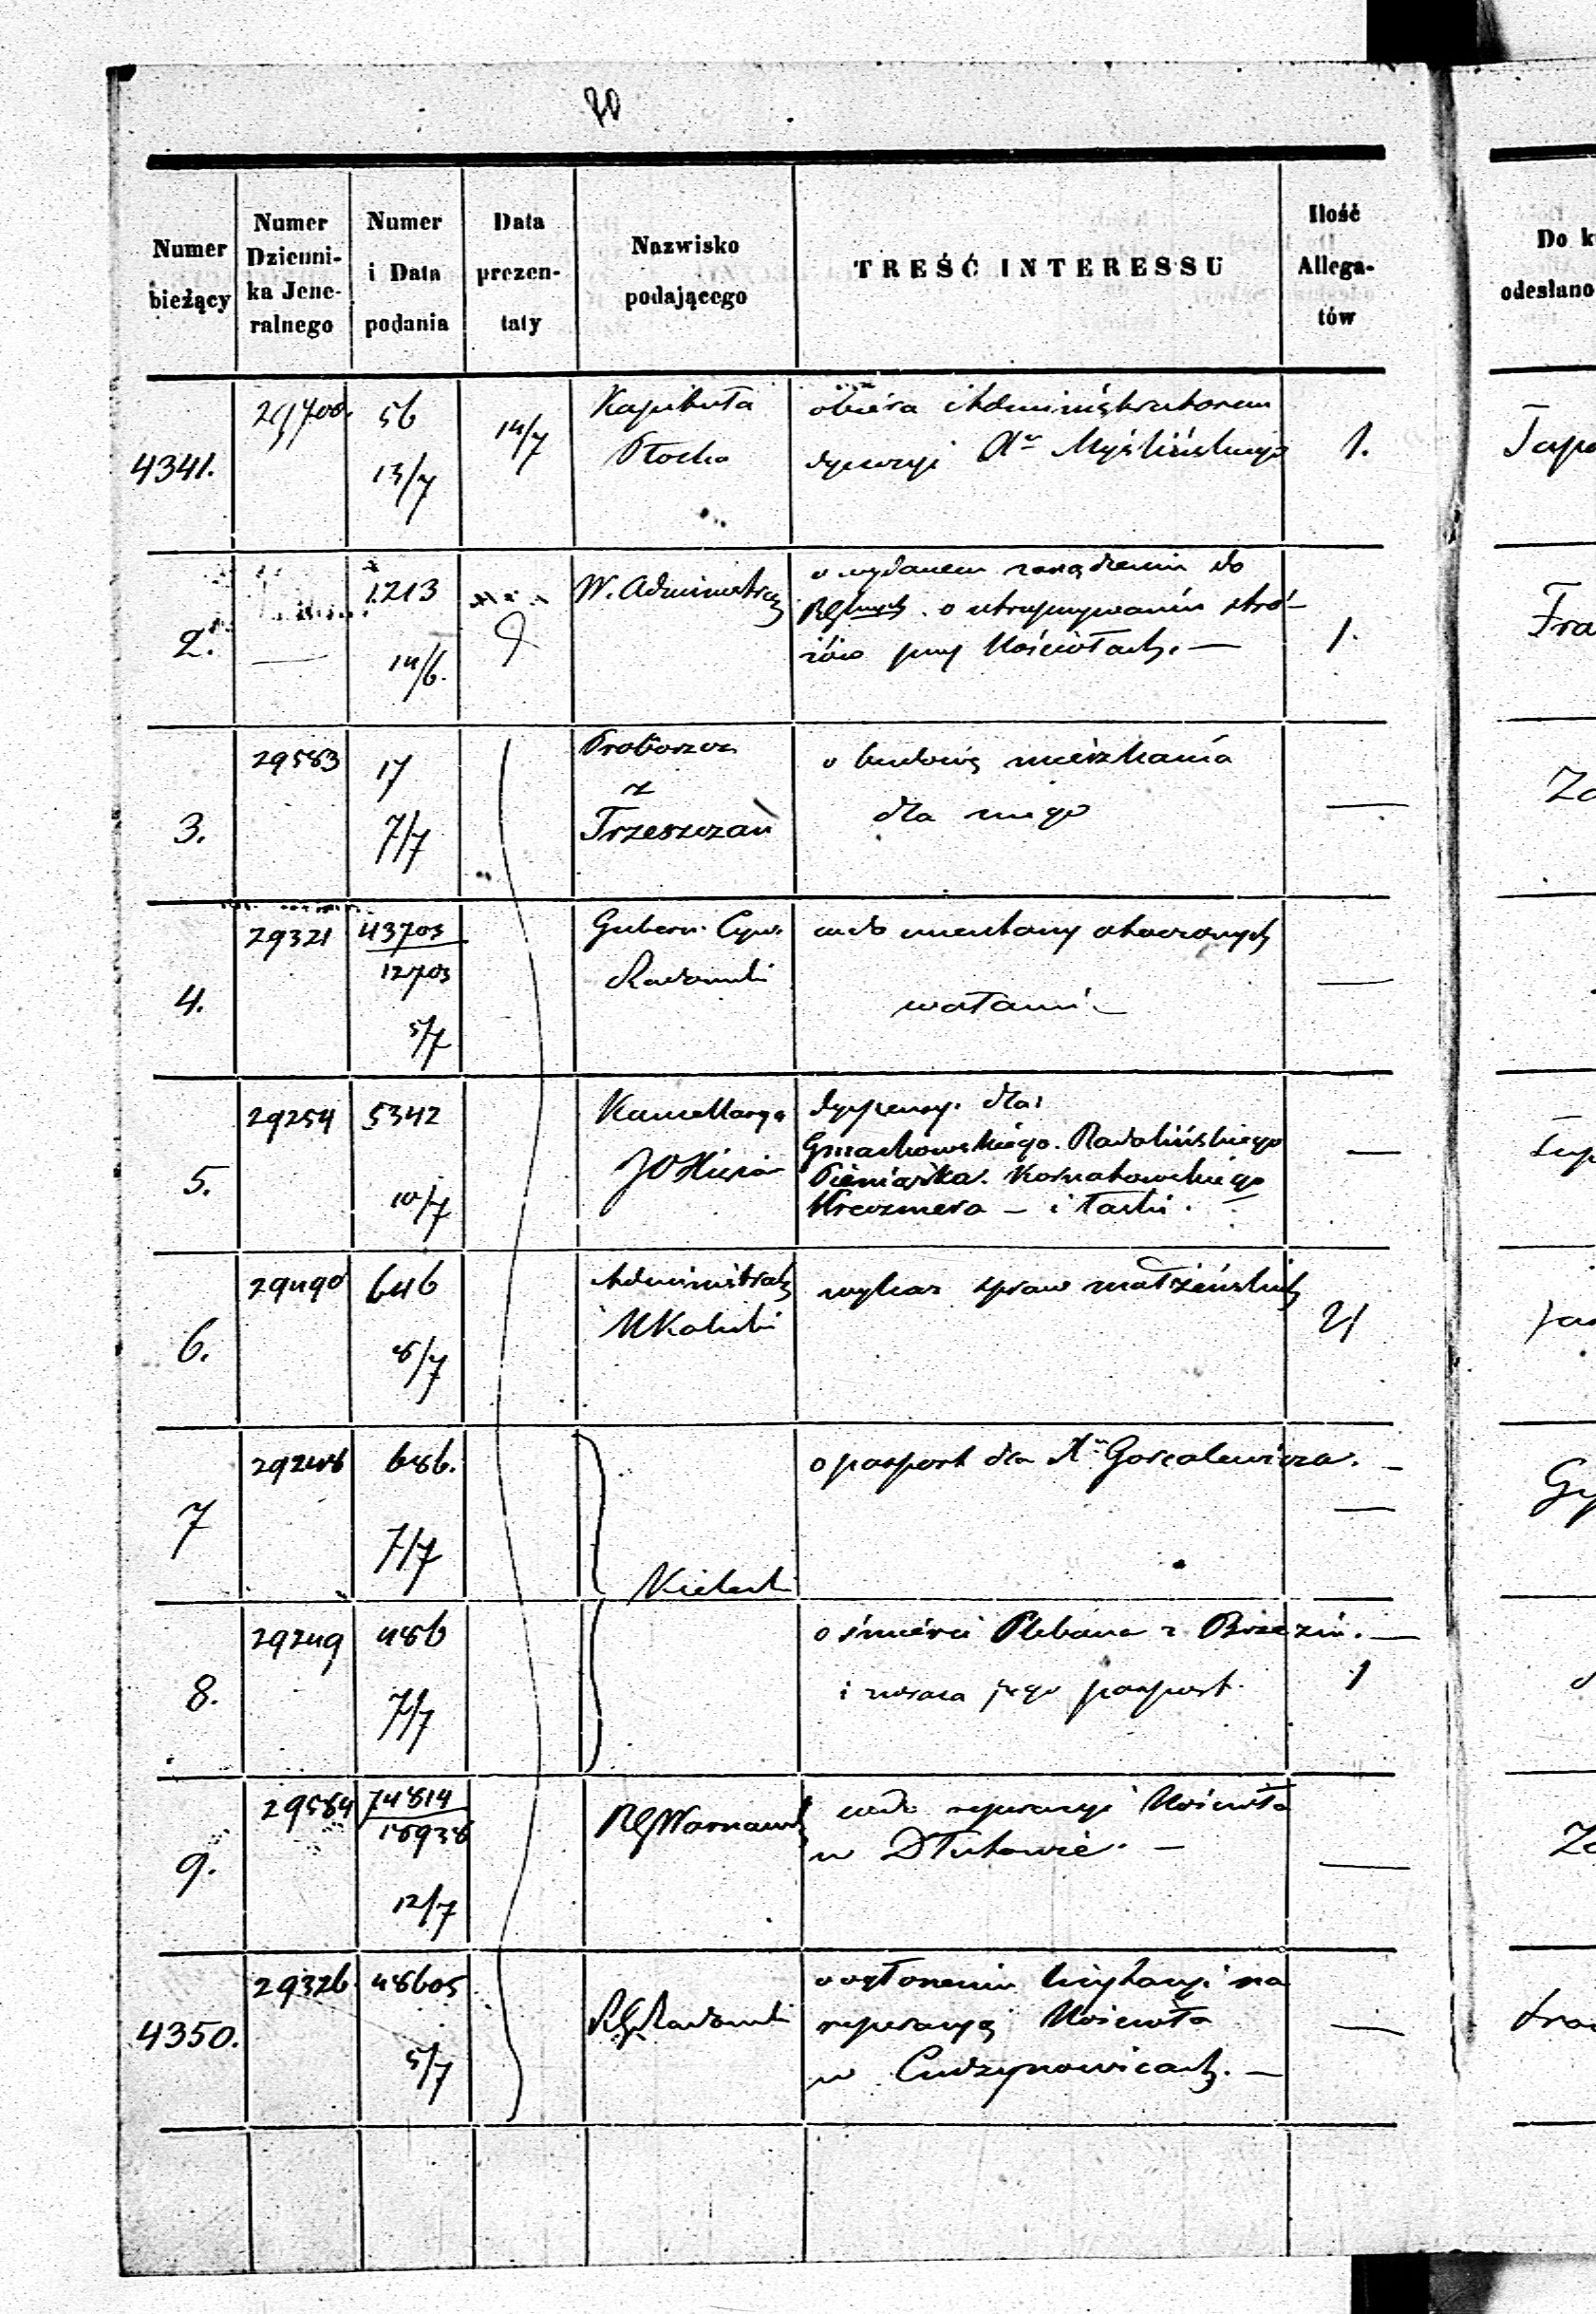 20
Numer bieżący
Numer Dzienni-
ka Jene-
ralnego
Numer i Data podania
Data prezen-
taty
Nazwisko podającego
TREŚĆ INTERESSU
Ilość Allega-
tów
Do k
odesłano
4341.
29700.
56
13/7
14/7
Kapituła
Płocka
obiera Administratorem
dyecezyi Xa Myślińskiego
1.
2.
1213
14/6.
W. Administracy
o wydanem rozrządzeniu do
o utrzymywaniu stró-
żów przy Kościołach. —
1.
Fra
3.
29583
17
7/7
Proboszcz
z
Trzeszczan
o budowię mieszkania
dla niego
—
4.
29321
43703
12703
5/7
Gubern. Cyw.
Radomski
cmentarzy otoczonych
wałami —
—
5.
29254
5342
10/7
Kancellarya
JO Xięcia
dyspensy. dla:
Gmachowskiego. Radolińskiego
Pieniążka. Kosnakowskiego
Kreczmera — i Łaski.
—
6.
29490
646
8/7
Administrat
wykaz spraw małżeńskich
21
7
29248
686.
7/7
Kielecki
o pasport dla Xa Gorcalewicza. —
—
8.
29249
486
7/7
o śmierci Plebana z Brzezin. —
i zwraca jego pasport.
1
9.
29584
74814
18938
12/7
RGWarszawski
reperacyi Kościoła
w Dłutowie. —
—
4350.
29326.
48605
5/7
RGRadomski
o ogłoszeniu licytacyi na
reperacyą Kościoła
w Cudzynowicach. —
—